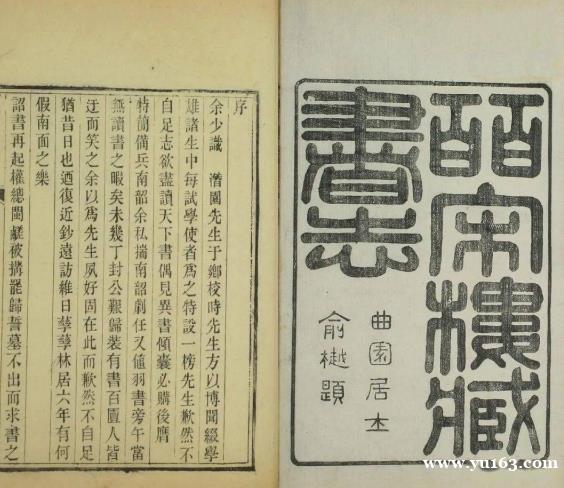 皕宋樓臧
書志
曲園居士
俞樾題
序
余少識 潛園先生于鄉校時先生方以博聞綴學
雄諸生中每試學使者爲之特設一榜先生歉然不
自足志欲盡讀天下書偶見異書傾囊必購後膺
特簡備兵南韶余私揣南韶劇任又值羽書旁午當
無讀書之暇矣未幾丁封公艱歸裝有書百匱人皆
迂而笑之余以爲先生夙好固在此而歉然不自足
猶昔日也迺復近鈔遠訪維日孳孳林居六年有何
假南面之樂
詔書再起權總閩鹺被搆罷歸誓墓不出而求書之
www.yu163.com